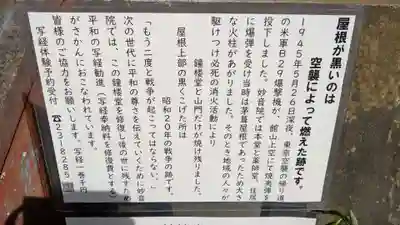 屋根が黒いのは
空襲によって燃えた跡です。
1945年5月26日深夜、東京空襲の帰り道
の米軍B29爆撃機が、館山上空にて焼夷弾を
投下しました。妙音院では本堂と薬師堂、住居
に爆弾を受け当時は茅葺屋根であったため大き
な火柱があがりました。そのとき地域の人々が
駆けつけ必死の消火活動により
鐘楼堂と山門だけが焼け残りました。
屋根上部の黒くこげた所は
昭和20年の戦争の跡です。
「もう二度と戦争が起こってはならない。」
次の世代に平和の尊さを伝えていくために妙音
院では、この鐘楼堂を修復し後の世に残すため
平和の写経勧進(写経奉納料を修復費とする)
がさかんにおこなわれています。
皆様のご協力をお願いします。写経一巻千円
写経体験予約受付 ☎23-8285